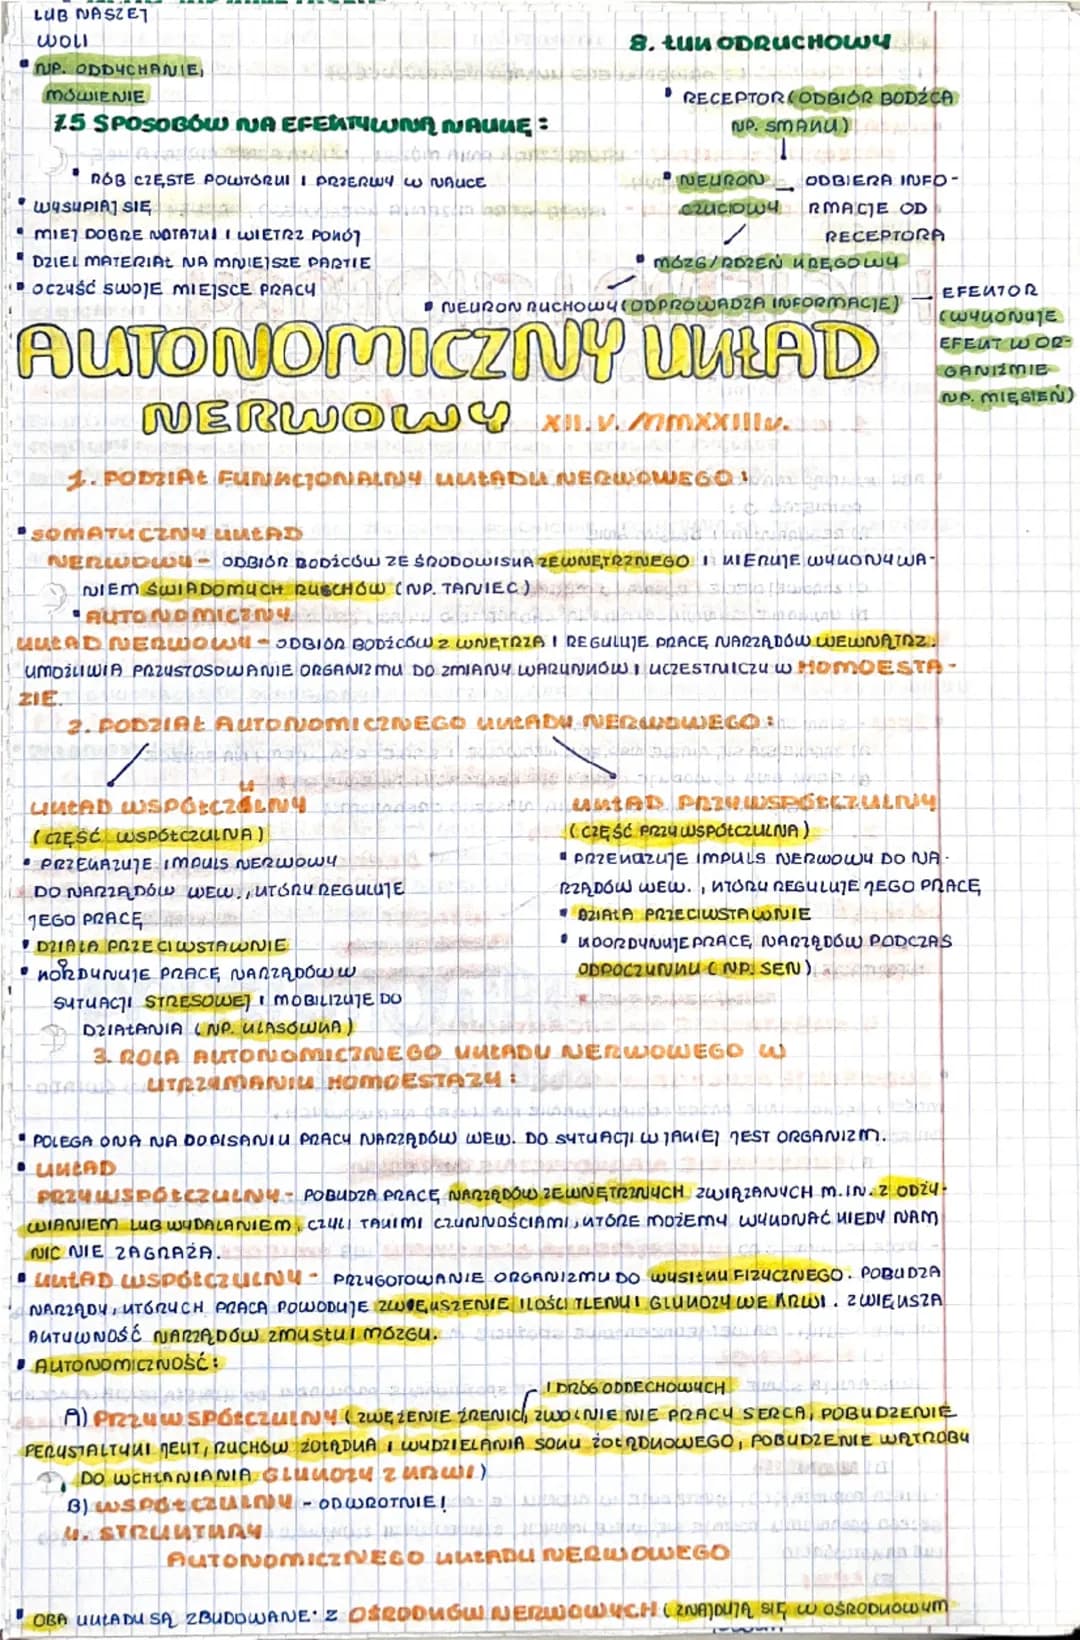 LUB NASZEJ
WOLI
• NP. ODDYCHANIE,
MÓWIENIE
7. 5 SPOSOBÓW NA EFEKTYWNĄ NAUKĘ:
• RÓB CZĘSTE POWTÓRKI I PRZERWY W NAUCE
• WYSYPIAJ SIĘ
• MIEJ DOBRE NOTATKI I WIETRZ POKÓJ
• DZIEL MATERIAŁ NA MNIEJSZE PARTIE
• OCZYŚĆ SWOJE MIEJSCE PRACY
8. ŁUK ODRUCHOWY
• RECEPTOR (ODBIÓR BODŹCA
NP. SMAKU)
• NEURON — ODBIERA INFO-
CZUCIOWY RMACJE OD
RECEPTORA
• MÓZG/RDZEŃ KRĘGOWY
• NEURON RUCHOWY (ODPROWADZA INFORMACJE) — EFEKTOR
(WYKONUJE
EFEKT W OR-
GANIZMIE
NP. MIĘSIEŃ)
AUTONOMICZNY UKŁAD
NERWOWY XII. V. MMXXIIIr.
1. PODZIAŁ FUNKCJONALNY UKŁADU NERWOWEGO:
• SOMATYCZNY UKŁAD
NERWOWY - ODBIÓR BODŹCÓW ZE ŚRODOWISKA ZEWNĘTRZNEGO I KIERUJE WYKONYWA-
NIEM ŚWIADOMYCH RUCHÓW (NP. TANIEC)
• AUTONOMICZNY
UKŁAD NERWOWY - ODBIÓR BODŹCÓW Z WNĘTRZA I REGULUJE PRACĘ NARZĄDÓW WEWNĄTRZ.
UMOŻLIWIA PRZYSTOSOWANIE ORGANIZMU DO ZMIANY WARUNKÓW I UCZESTNICZY W HOMOESTA-
ZIE.
2. PODZIAŁ AUTONOMICZNEGO UKŁADU NERWOWEGO:
UKŁAD WSPÓŁCZULNY
(CZĘŚĆ WSPÓŁCZULNA)
• PRZEKAZUJE IMPULS NERWOWY
DO NARZĄDÓW WEW., KTÓRY REGULUJE
JEGO PRACĘ
• DZIAŁA PRZECIWSTAWNIE
• KORDYNUJE PRACĘ NARZĄDÓW W
SYTUACJI STRESOWEJ I MOBILIZUJE DO
DZIAŁANIA (NP. KLASÓWKA)
UKŁAD PRZYWSPÓŁCZULNY
(CZĘŚĆ PRZYWSPÓŁCZULNA)
• PRZEKAZUJE IMPULS NERWOWY DO NA-
RZĄDÓW WEW., KTÓRY REGULUJE JEGO PRACĘ
• DZIAŁA PRZECIWSTAWNIE
• KOORDYNUJE PRACĘ NARZĄDÓW PODCZAS
ODPOCZYNKU (NP. SEN)
3. ROLA AUTONOMICZNEGO UKŁADU NERWOWEGO W
UTRZYMANIU HOMOESTAZY:
• POLEGA ONA NA DOPISANIU PRACY NARZĄDÓW WEW. DO SYTUACJI W JAKIEJ JEST ORGANIZM.
• UKŁAD
PRZYWSPÓŁCZULNY - POBUDZA PRACĘ NARZĄDÓW ZEWNĘTRZNYCH ZWIĄZANYCH M.IN. Z ODŻY-
WIANIEM LUB WYDALANIEM, CZYLI TAKIMI CZYNNOŚCIAMI, KTÓRE MOŻEMY WYKONAĆ KIEDY NAM
NIC NIE ZAGRAŻA.
• UKŁAD WSPÓŁCZULNY - PRZYGOTOWANIE ORGANIZMU DO WYSIŁKU FIZYCZNEGO. POBUDZA
NARZĄDY, KTÓRYCH PRACA POWODUJE ZWIĘKSZENIE ILOŚCI TLENU I GLUKOZY WE KRWI. ZWIĘKSZA
AKTYWNOŚĆ NARZĄDÓW ZMYSŁU I MÓZGU.
• AUTONOMICZNOŚĆ:
I DRÓG ODDECHOWYCH
A) PRZYWSPÓŁCZULNY (ZWĘŻENIE ŹRENIC, ZWOLNIENIE PRACY SERCA, POBUDZENIE
PERYSTALTYKI JELIT, RUCHÓW ŻOŁĄDKA I WYDZIELANIA SOKU ŻOŁĄDKOWEGO, POBUDZENIE WĄTROBY
DO WCHŁANIANIA GLUKOZY Z KRWI)
B) WSPÓŁCZULNY - ODWROTNIE!
4. STRUKTURY
AUTONOMICZNEGO UKŁADU NERWOWEGO
• OBA UKŁADY SĄ ZBUDOWANE: Z OŚRODKÓW NERWOWYCH (ZNAJDUJĄ SIĘ W OŚRODKOWYM